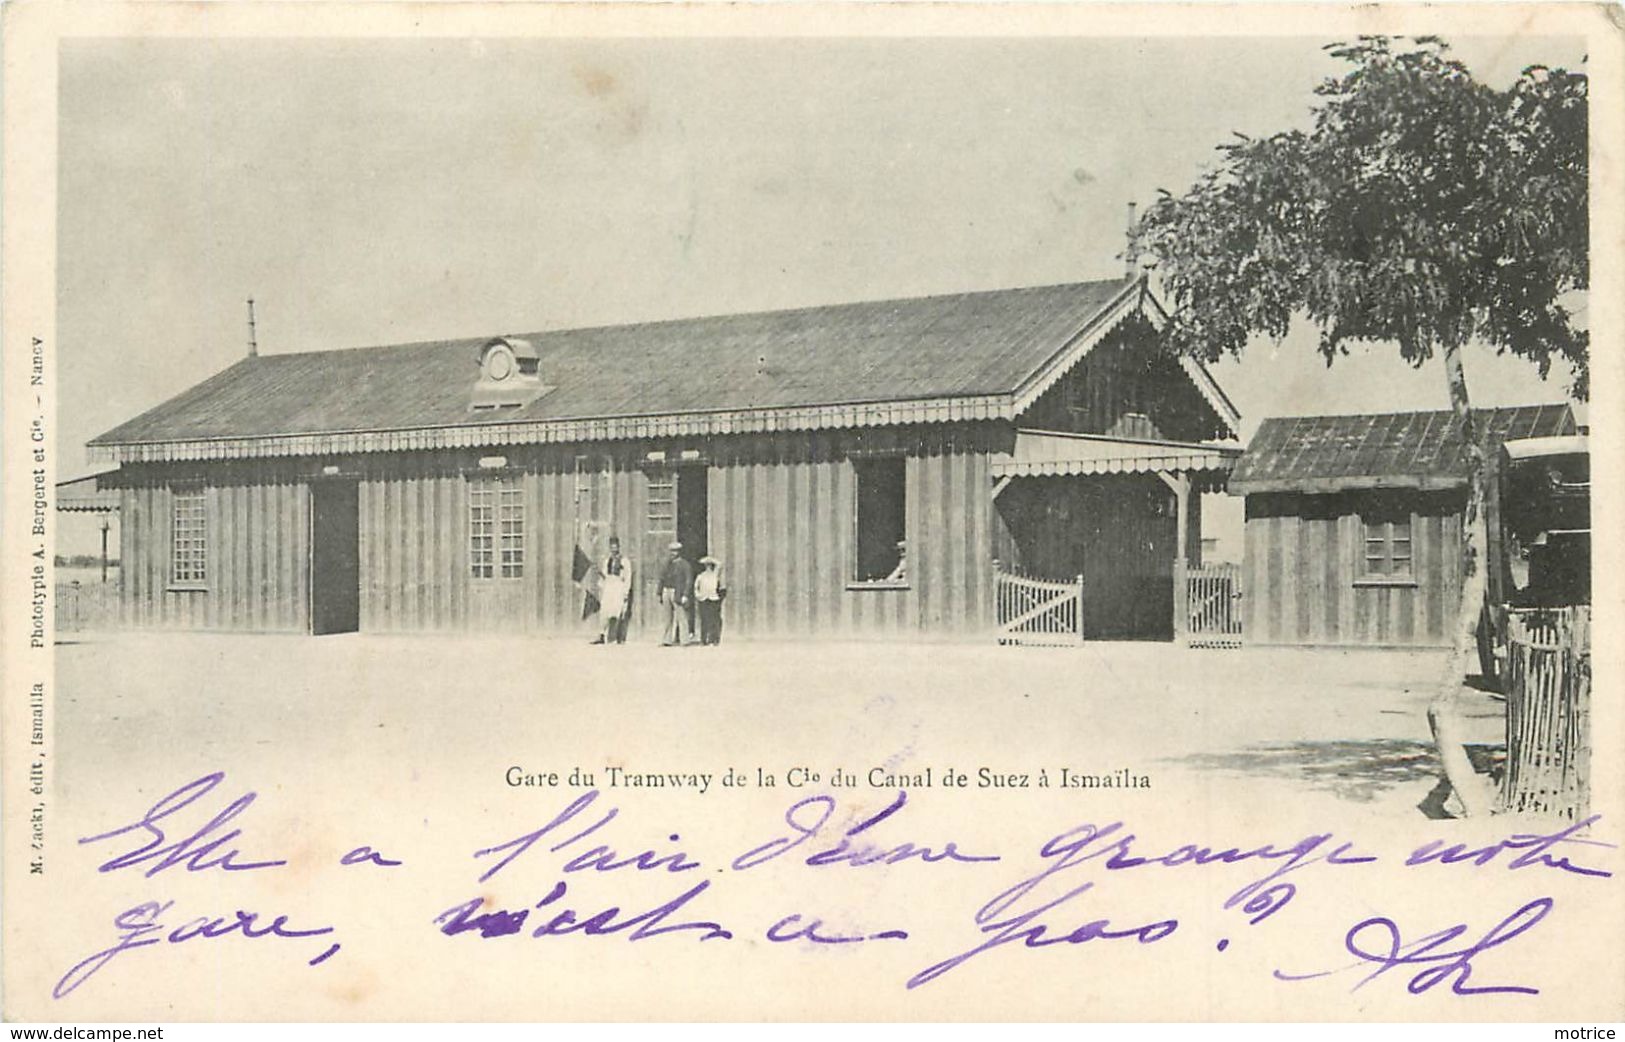 Gare du Tramway de la Cie du Canal de Suez à Ismaïlia
Elle a l'air d'une grange notre
gare, n'est-ce pas?
M. Zacki, édit, Ismaïlia Phototypie A. Bergeret et Cie. - Nancy
www.delcampe.net
motrice